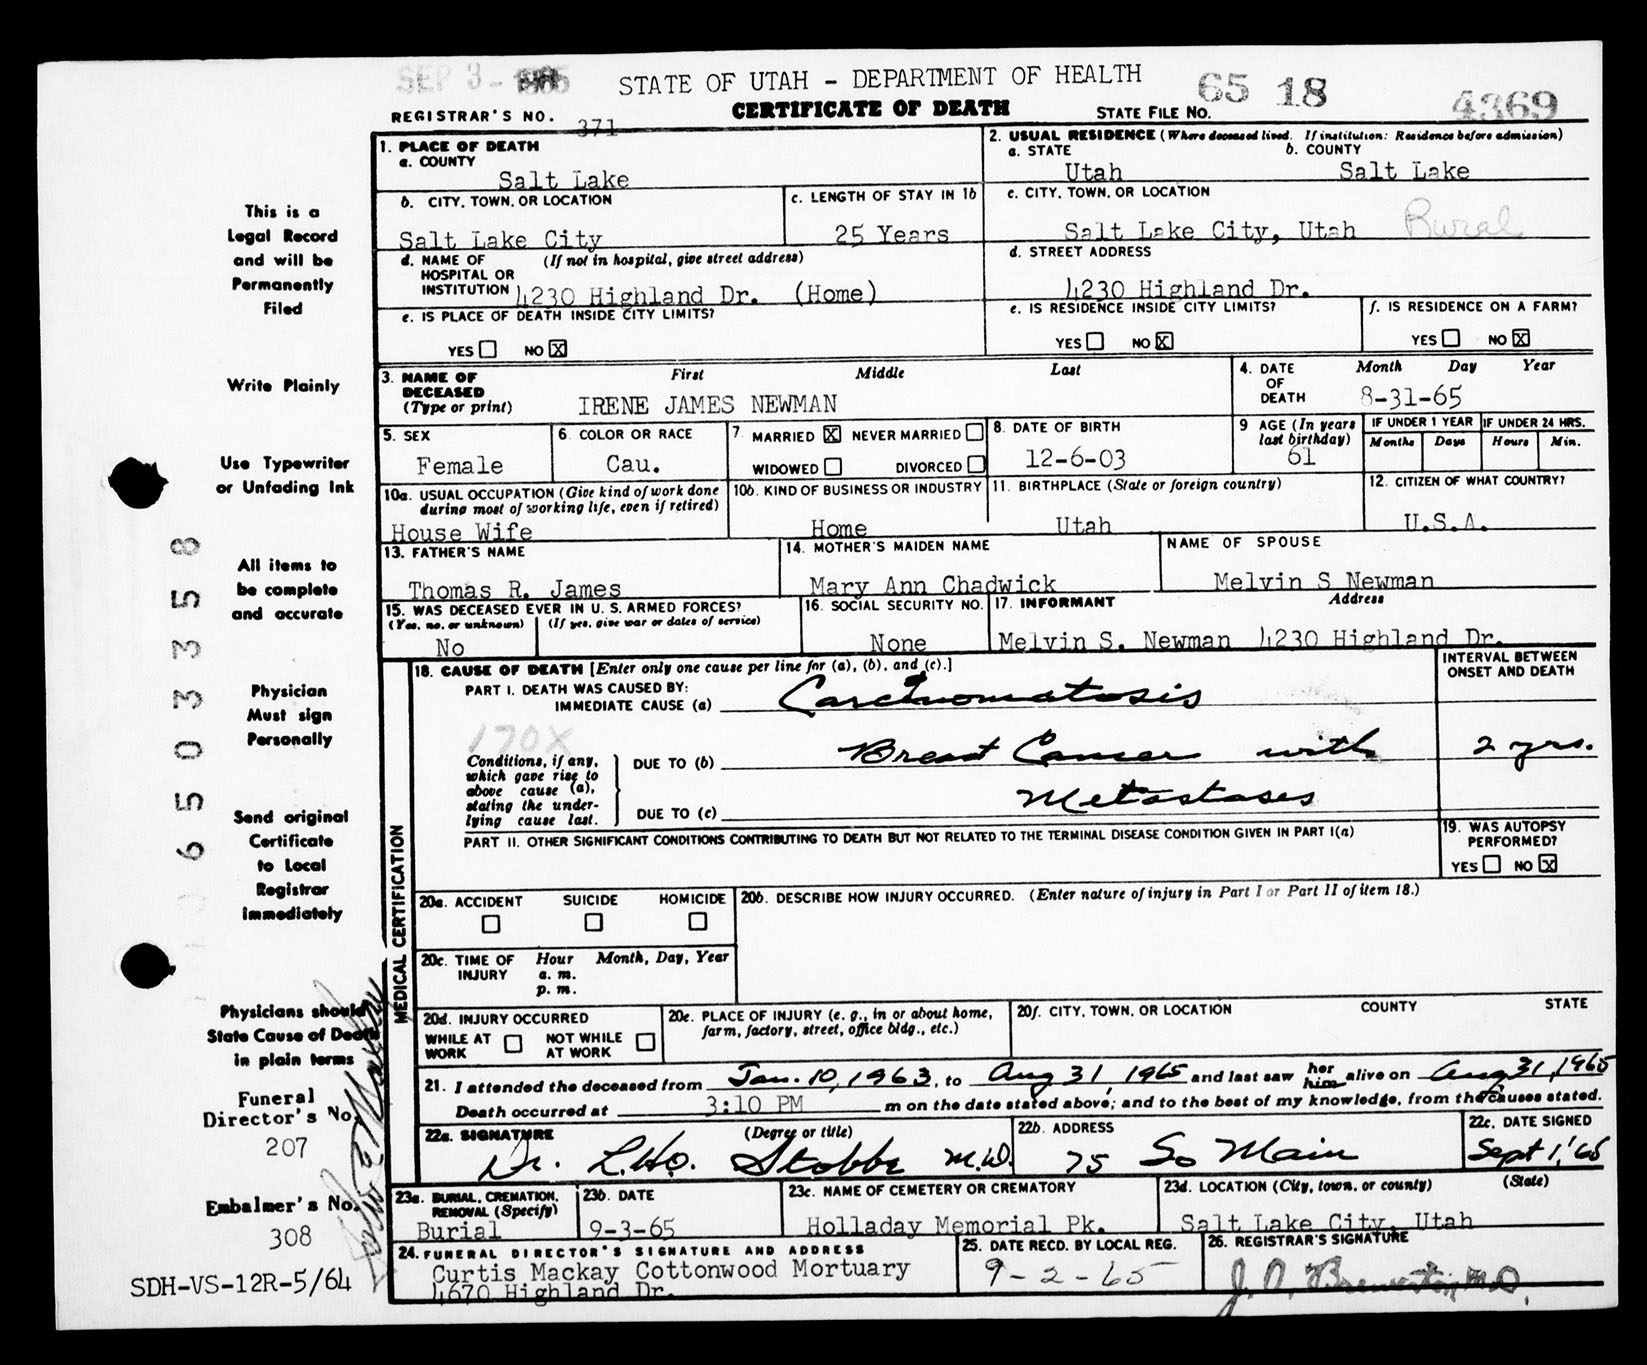 SEP 3 - 1965
STATE OF UTAH - DEPARTMENT OF HEALTH
65 18 4369
CERTIFICATE OF DEATH
STATE FILE NO.
REGISTRAR'S NO. 371
1. PLACE OF DEATH
a. COUNTY
Salt Lake
2. USUAL RESIDENCE (Where deceased lived. If institution: Residence before admission)
a. STATE b. COUNTY
Utah Salt Lake
b. CITY, TOWN, OR LOCATION
Salt Lake City
c. LENGTH OF STAY IN 1b
25 Years
c. CITY, TOWN, OR LOCATION
Salt Lake City, Utah Rural
d. NAME OF (If not in hospital, give street address)
HOSPITAL OR
INSTITUTION 4230 Highland Dr. (Home)
d. STREET ADDRESS
4230 Highland Dr.
e. IS PLACE OF DEATH INSIDE CITY LIMITS?
YES NO X
e. IS RESIDENCE INSIDE CITY LIMITS?
YES NO X
f. IS RESIDENCE ON A FARM?
YES NO X
3. NAME OF
DECEASED
(Type or print)
First Middle Last
IRENE JAMES NEWMAN
4. DATE
OF
DEATH
Month Day Year
8-31-65
5. SEX
Female
6. COLOR OR RACE
Cau.
7. MARRIED X NEVER MARRIED
WIDOWED DIVORCED
8. DATE OF BIRTH
12-6-03
9 AGE (In years
last birthday)
61
IF UNDER 1 YEAR
Months Days
IF UNDER 24 HRS.
Hours Min.
10a. USUAL OCCUPATION (Give kind of work done
during most of working life, even if retired)
House Wife
10b. KIND OF BUSINESS OR INDUSTRY
Home
11. BIRTHPLACE (State or foreign country)
Utah
12. CITIZEN OF WHAT COUNTRY?
U.S.A.
13. FATHER'S NAME
Thomas R. James
14. MOTHER'S MAIDEN NAME
Mary Ann Chadwick
NAME OF SPOUSE
Melvin S Newman
15. WAS DECEASED EVER IN U. S. ARMED FORCES?
(Yes, no, or unknown) (If yes, give war or dates of service)
No
16. SOCIAL SECURITY NO.
None
17. INFORMANT Address
Melvin S. Newman 4230 Highland Dr.
MEDICAL CERTIFICATION
18. CAUSE OF DEATH [Enter only one cause per line for (a), (b), and (c).]
INTERVAL BETWEEN
ONSET AND DEATH
PART I. DEATH WAS CAUSED BY:
IMMEDIATE CAUSE (a) Carcinomatosis
170X
Conditions, if any,
which gave rise to
above cause (a),
stating the under-
lying cause last.
DUE TO (b) Breast Cancer with 2 yrs.
DUE TO (c) Metastases
PART II. OTHER SIGNIFICANT CONDITIONS CONTRIBUTING TO DEATH BUT NOT RELATED TO THE TERMINAL DISEASE CONDITION GIVEN IN PART I(a)
19. WAS AUTOPSY
PERFORMED?
YES NO X
20a. ACCIDENT SUICIDE HOMICIDE
20b. DESCRIBE HOW INJURY OCCURRED. (Enter nature of injury in Part I or Part II of item 18.)
20c. TIME OF Hour Month, Day, Year
INJURY a. m.
p. m.
20d. INJURY OCCURRED
WHILE AT WORK NOT WHILE AT WORK
20e. PLACE OF INJURY (e. g., in or about home,
farm, factory, street, office bldg., etc.)
20f. CITY, TOWN, OR LOCATION COUNTY STATE
21. I attended the deceased from Jan. 10, 1963, to Aug 31, 1965 and last saw her him alive on Aug, 31, 1965
Death occurred at 3:10 PM m on the date stated above; and to the best of my knowledge, from the causes stated.
22a. SIGNATURE (Degree or title)
Dr. L.H.O. Stobbe M.D.
22b. ADDRESS
75 So Main
22c. DATE SIGNED
Sept 1, '65
23a. BURIAL, CREMATION,
REMOVAL (Specify)
Burial
23b. DATE
9-3-65
23c. NAME OF CEMETERY OR CREMATORY
Holladay Memorial Pk.
23d. LOCATION (City, town, or county) (State)
Salt Lake City, Utah
24. FUNERAL DIRECTOR'S SIGNATURE AND ADDRESS
Curtis Mackay Cottonwood Mortuary
4670 Highland Dr.
25. DATE RECD. BY LOCAL REG.
9-2-65
26. REGISTRAR'S SIGNATURE
This is a
Legal Record
and will be
Permanently
Filed
Write Plainly
Use Typewriter
or Unfading Ink
All items to
be complete
and accurate
Physician
Must sign
Personally
Send original
Certificate
to Local
Registrar
immediately
Physicians should
State Cause of Death
in plain terms
Funeral
Director's No.
207
Embalmer's No.
308
SDH-VS-12R-5/64
650 3 3 5 8